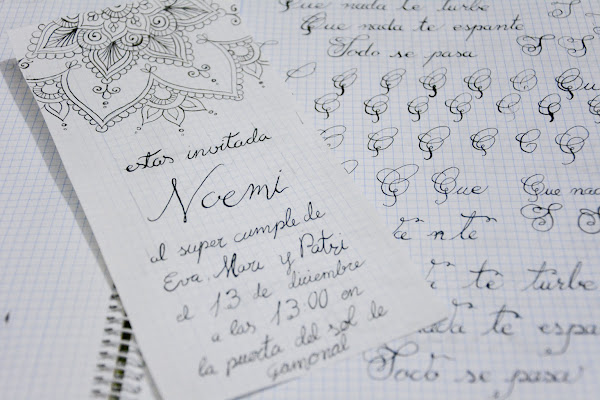 estas invitada
Noemi
al super cumple de
Eva, Mari y Patri
el 13 de diciembre
a las 13:00 en
la puerta del sol de
gamonal
Que nada te turbe
Que nada te espante
Todo se pasa
Que
Que nad
te turbe
nada te espa
Todo se pasa